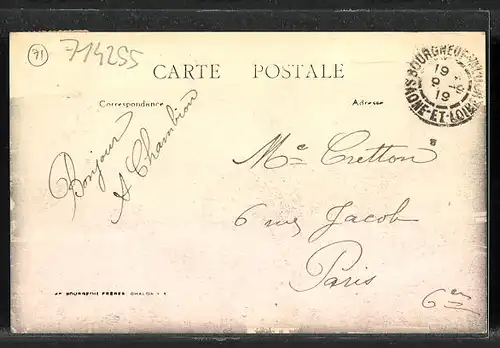 71
714255
CARTE POSTALE
Correspondance
Adresse
BOURGNEUF
19
9
19
SAONE-ET-LOIRE
Bonjour
A Chambion
Mce Cretton
6 rue Jacob
Paris
6em
BOURGEOIS FRÈRES CHALON S S